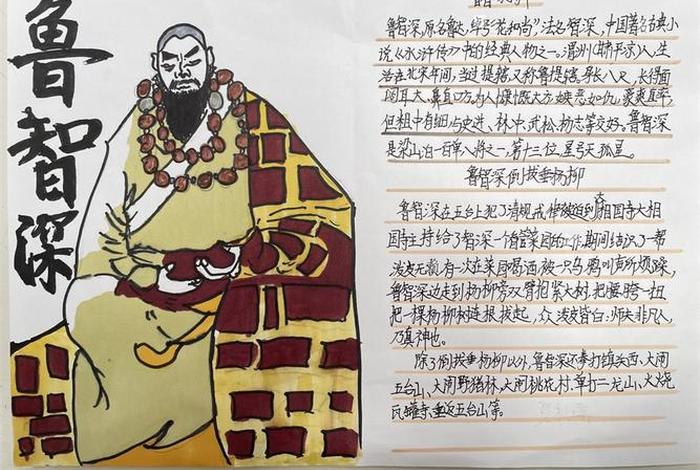 鲁智深
鲁智深,原名鲁达,绰号"花和尚",法名智深,中国著名古典小
说《水浒传》中的经典人物之一。渭州(今肃平凉)人,生
活在北宋年间,当过提辖,又称鲁提辖,身长八尺,长得面
阔耳大,鼻直口方。为人慷慨大方,嫉恶如仇,豪爽直率,
但粗中有细,与史进、林冲、武松、杨志等交好。鲁智深
是梁山泊一百单八将之一,第十三位,星号天孤星。
鲁智深倒拔垂杨柳
鲁智深在五台上犯了清规戒律 相国寺,大相
国寺主持给了智深一个管菜园的工作,期间结识了一帮
泼皮无赖,有一次在菜园喝酒,被一只乌鸦叫声所烦躁,
鲁智深边走到杨柳旁,双臂抱紧大树,把腰胯一扭
把一棵杨柳树连根拔起,众泼皮皆曰:师夫非凡人,
乃真神也。
除了倒拔垂杨柳以外,鲁智深还拳打镇关西、大闹
五台山、大闹野猪林、大闹桃花村、单打二龙山、火烧
瓦罐寺、重返五台山等。